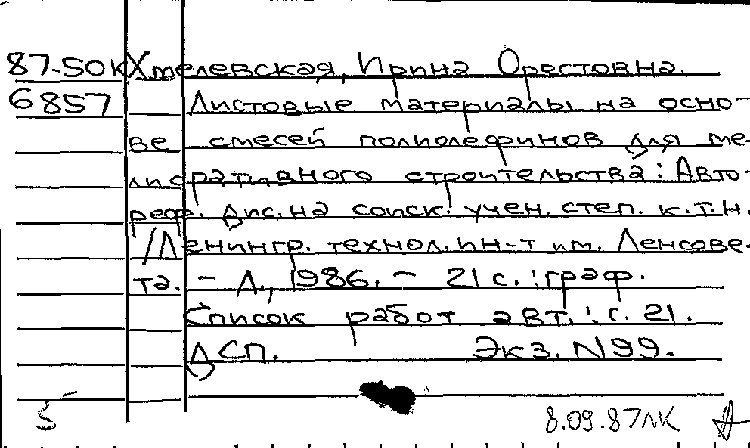 87-50К Хмелевская, Ирина Орестовна.
6857 Листовые материалы на осно-
ве смесей полиолефинов для ме-
лиоративного строительства: Авто-
реф. дис. на соиск. учен. степ. к.т.н.
/Ленингр. технол. ин-т им. Ленсове-
та. - Л., 1986. - 21 с. : граф.
Список работ авт.: с. 21.
ДСП. Экз. N 99.
5 8.09.87 ЛК